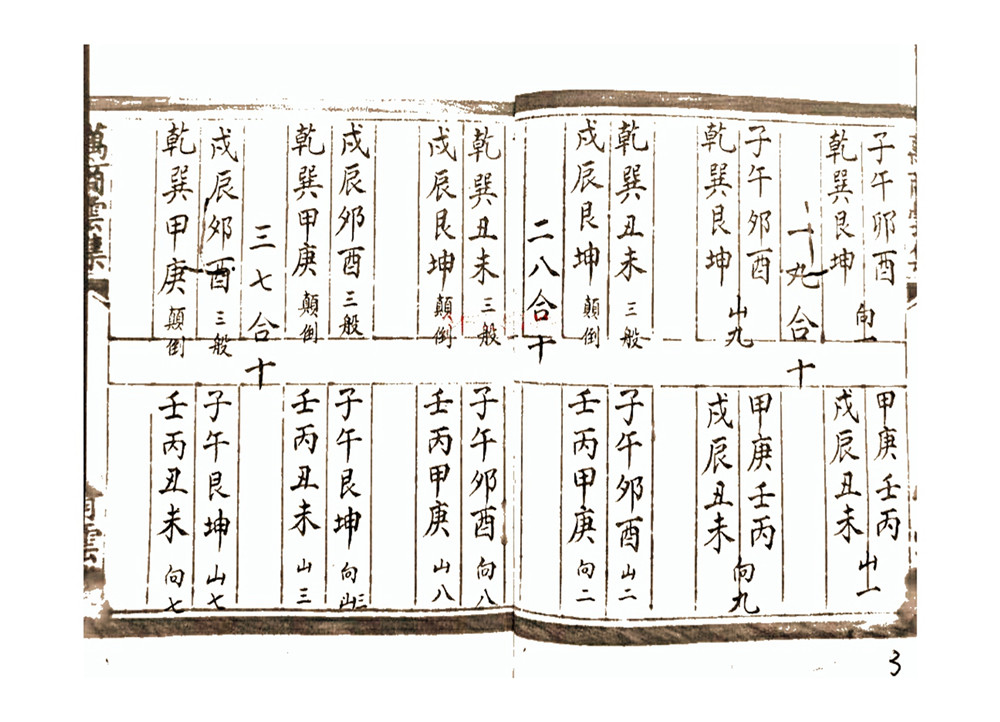 子午卯酉 向一
甲庚壬丙 山一
乾巽艮坤
戌辰丑未
一九合十
子午卯酉 山九
甲庚壬丙 向九
乾巽艮坤
戌辰丑未
乾巽丑未 三般
子午卯酉 山二
戌辰艮坤 顛倒
壬丙甲庚 向二
二八合十
乾巽丑未 三般
子午卯酉 向八
戌辰艮坤 顛倒
壬丙甲庚 山八
戌辰卯酉 三般
子午艮坤 向
乾巽甲庚 顛倒
壬丙丑未 山三
三七合十
戌辰卯酉 三般
子午艮坤 山七
乾巽甲庚 顛倒
壬丙丑未 向七
萬雲集
雲
3